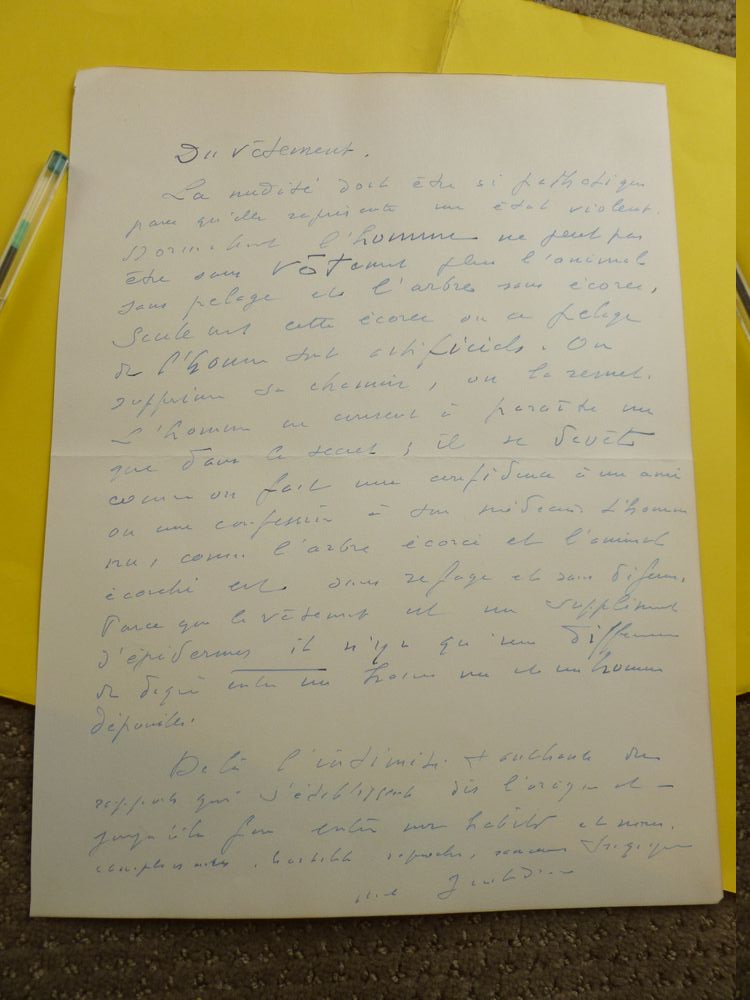 Du vêtement.
La nudité doit être si pathétique
parce qu'elle représente un état violent.
Normalement l'homme ne peut pas
être sans vêtement plus l'animal
sans pelage et l'arbre sans écorce,
Seulement cette écorce ou ce pelage
de l'homme sont artificiels. On
supprime sa chemise, on la remet.
L'homme ne consent à paraître nu
que dans le secret ; il se dévêt
comme on fait une confidence à un ami
ou une confession à son médecin. L'homme
nu, comme l'arbre écorcé et l'animal
écorché est sans refuge et sans défense.
Parce que le vêtement est un supplément
d'épidermes il n'y a qu'une différence
de degré entre un homme nu et un homme
dépouillé.
De là l'intimité touchante des
rapports qui s'établissent dès l'origine et
jusqu'à la fin entre nos habits et nous.